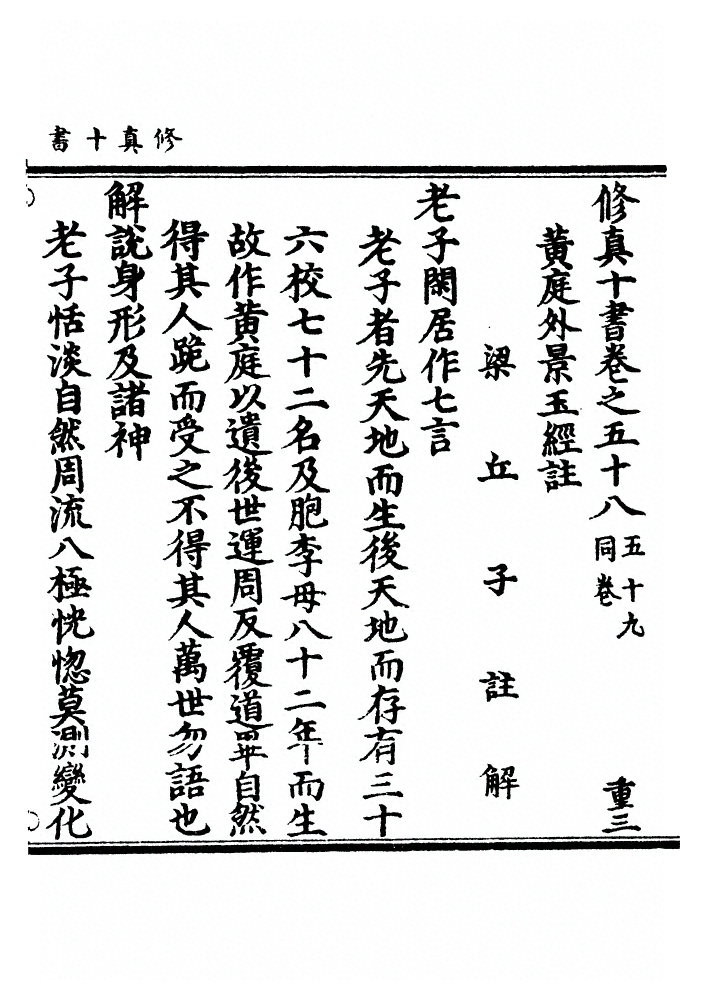 修真十書
修真十書卷之五十八 五十九同卷 重三
黃庭外景玉經註
梁丘子註解
老子閑居作七言
老子者先天地而生後天地而存有三十
六校七十二名及胞李母八十二年而生
故作黃庭以遺後世運周反覆道畢自然
得其人跪而受之不得其人萬世勿語也
解說身形及諸神
老子恬淡自然周流八極恍惚莫測變化